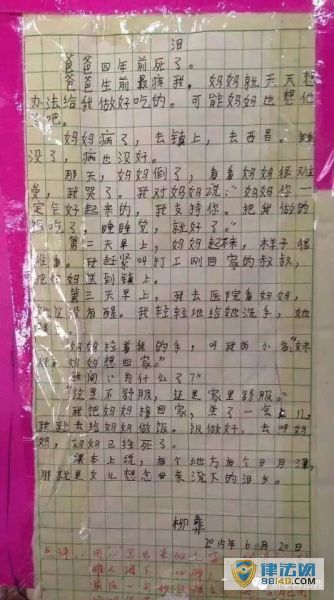 泪
爸爸四年前死了。
爸爸生前最疼我。妈妈就天天想
办法给我做好吃的。可能妈妈也想他
了吧。
妈妈病了,去镇上,去西昌。钱
没了,病也没好。
那天,妈妈倒了,看看妈妈很难
受,我哭了。我对妈妈说:“妈妈你一
定会好起来的,我支持你。把我做的
饭吃了,睡睡觉,就好了。”
第二天早上,妈妈起不来,样子很
难看。我赶紧叫打工刚回家的叔叔,
把妈妈送到镇上。
第三天早上,我去医院看妈妈,
她还没有醒。我轻轻地给她洗手,她
醒了。
妈妈拉着我的手,叫我的小名:“妹
妹,妈妈想回家。”
我问:“为什么了?”
“这里不舒服,还是家里舒服。”
我把妈妈接回家,坐了一会儿,
我就去给妈妈做饭。饭做好,去叫妈
妈,妈妈已经死了。
课本上说,有个地方有个日月潭,
那就是女儿想念母亲流下的泪水。
柳彝
2015年6月20日
点评:用心写出来的
律法网
88148.COM